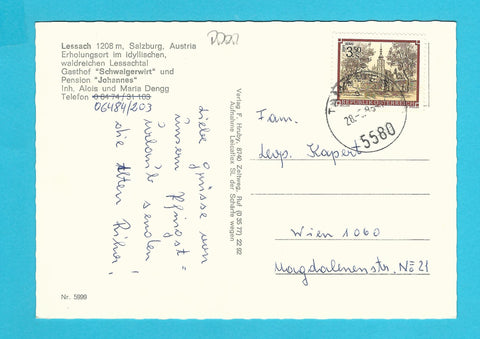 Lessach 1208 m, Salzburg, Austria
Erholungsort im idyllischen,
waldreichen Lessachtal
Gasthof "Schwaigerwirt" und
Pension "Johannes"
Inh. Alois und Maria Dengg
Telefon 0 64 74 / 31 103
06484/203
liebe Grüsse von
unserm Pfingst=
urlaub senden
die alten
Verlag F. Hruby, 8740 Zeltweg, Ruf (0 35 77) 22 92
Aufnahme Leicaflex SL der Schärfe wegen
3.50
REPUBLIK ÖSTERREICH
5580
Fam.
Leop. Kapert
Wien 1060
Magdalenenstr. № 21
Nr. 5999